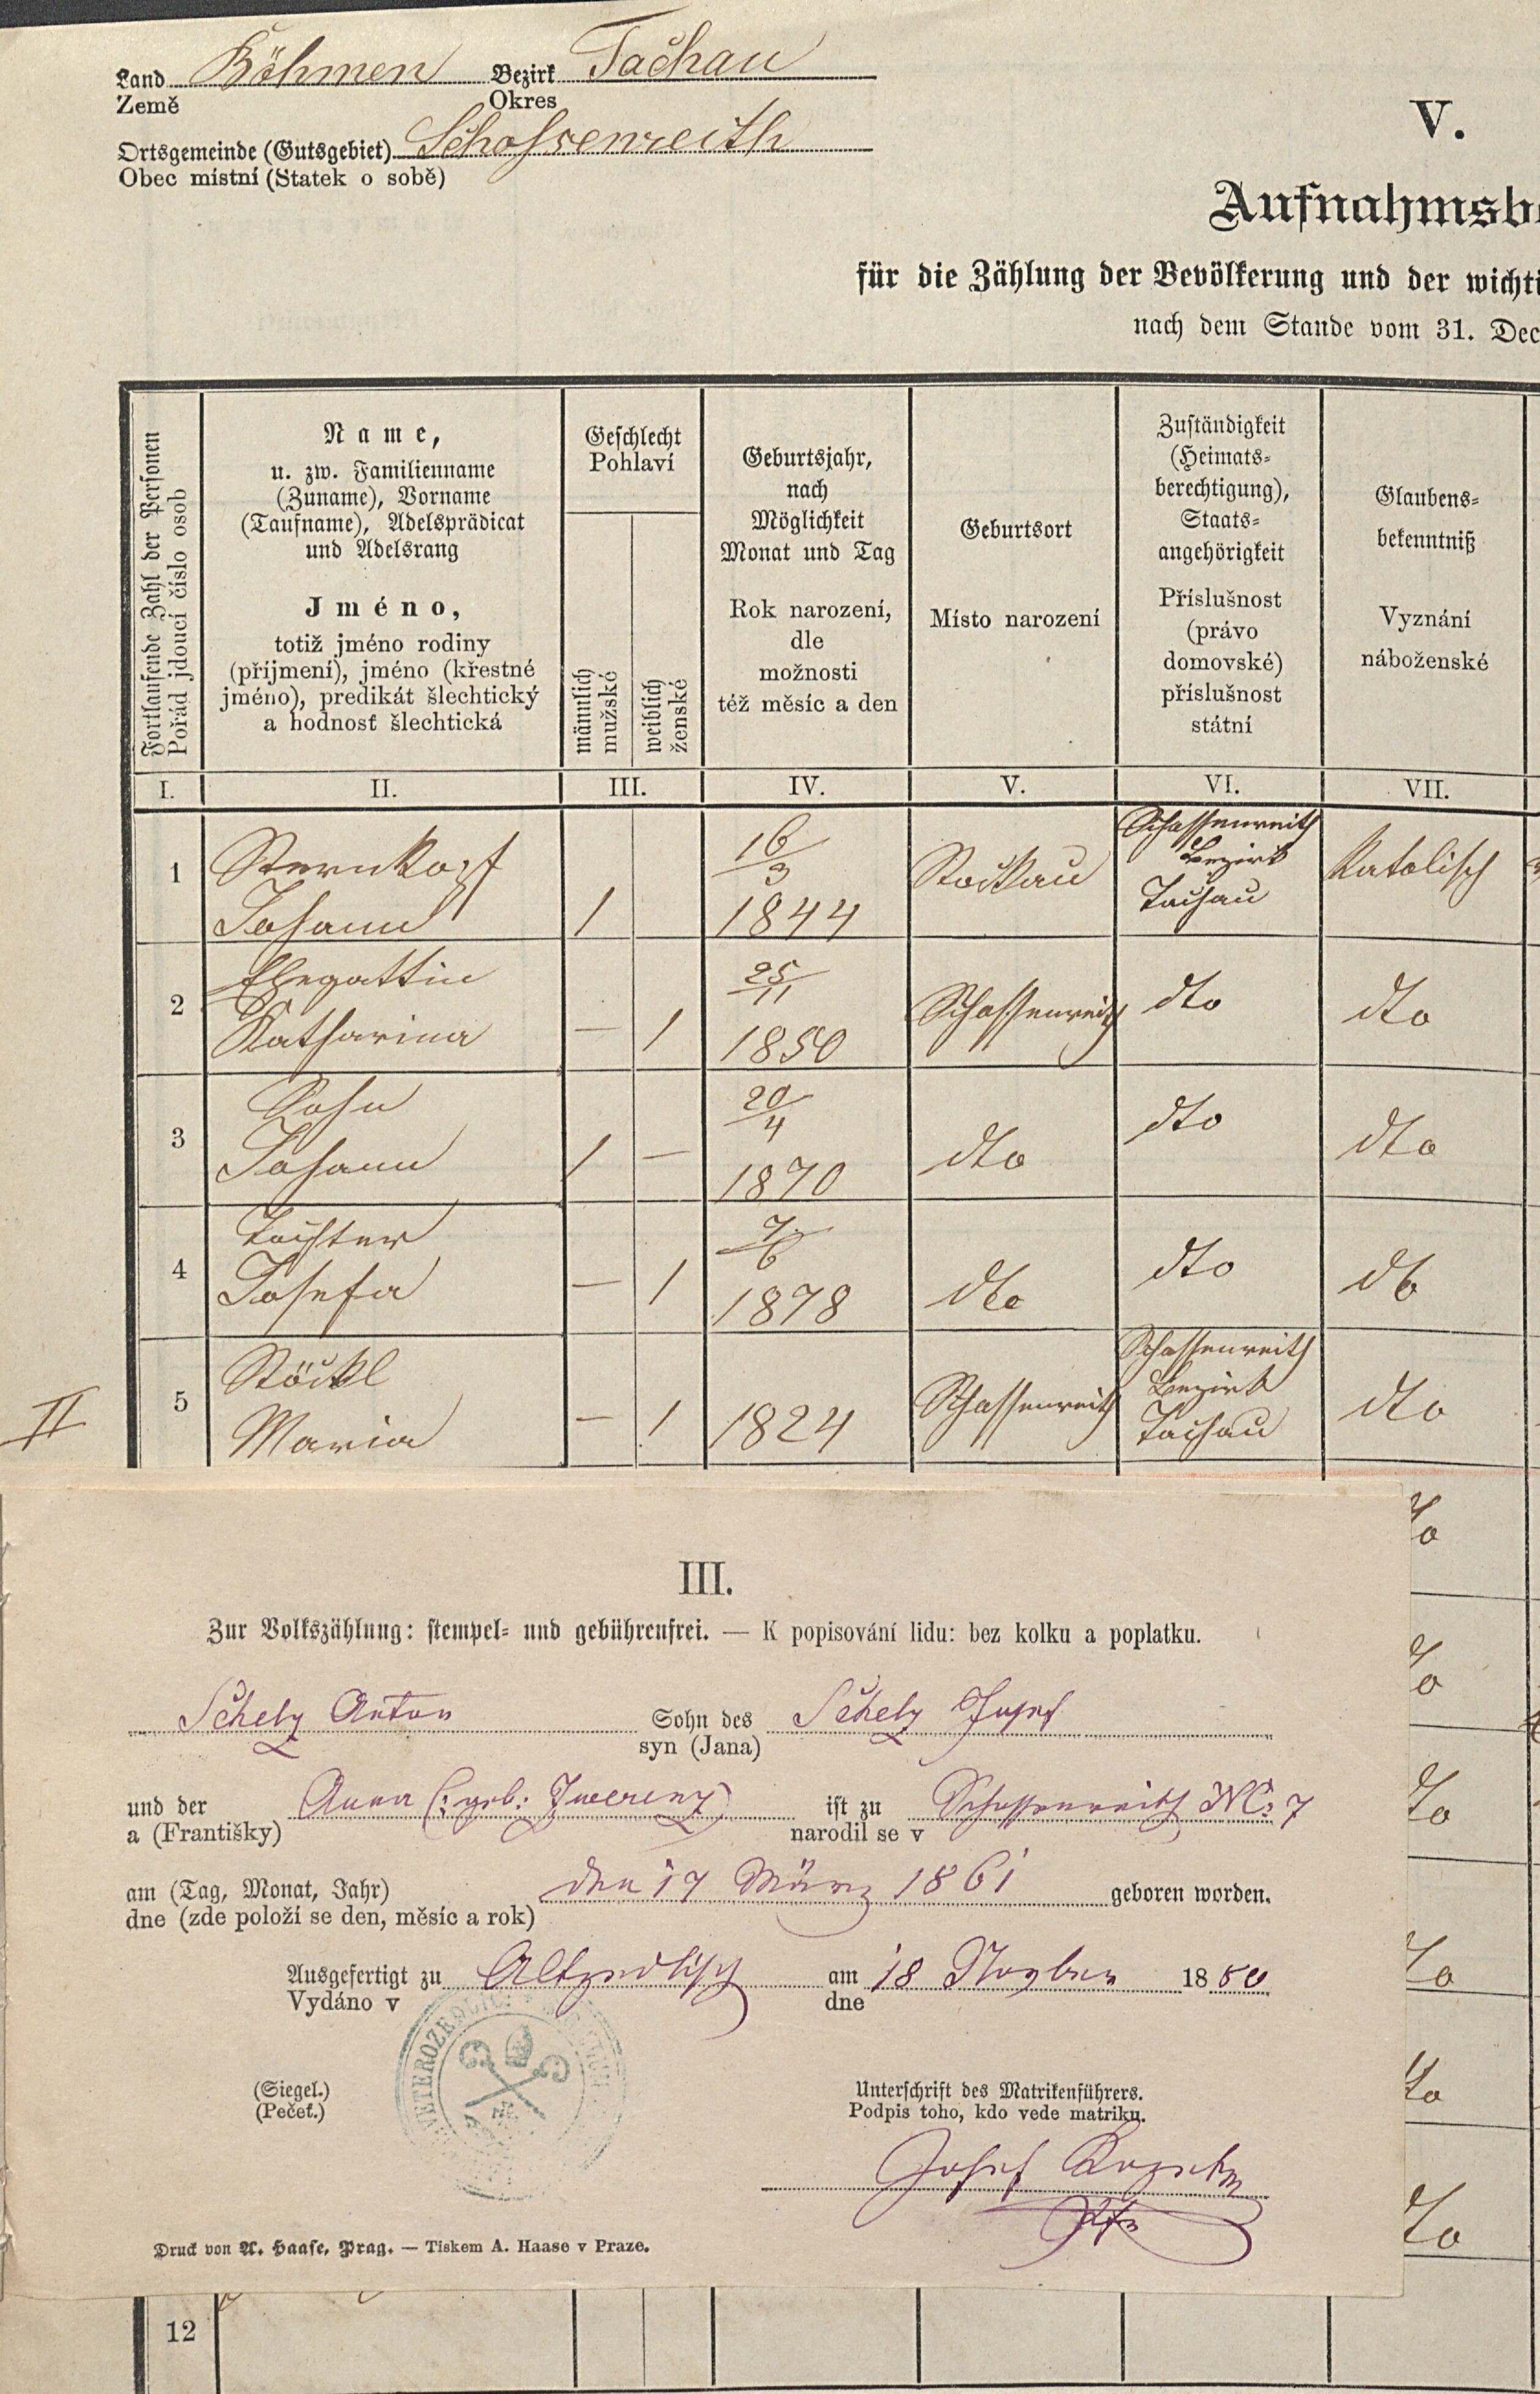 Land Böhmen Bezirk Tachau
Země Okres
Ortsgemeinde (Gutsgebiet) Schossenreith
Obec místní (Statek o sobě)
V.
Aufnahmsb
für die Zählung der Bevölkerung und der wichti
nach dem Stande vom 31. Dec
Fortlaufende Zahl der Personen
Pořád jdoucí číslo osob
Name,
u. zw. Familienname
(Zuname), Vorname
(Taufname), Adelsprädicat
und Adelsrang
Jméno,
totiž jméno rodiny
(příjmení), jméno (křestné
jméno), predikát šlechtický
a hodnosť šlechtická
Geschlecht
Pohlaví
männlich
mužské
weiblich
ženské
Geburtsjahr,
nach
Möglichkeit
Monat und Tag
Rok narození,
dle
možnosti
též měsíc a den
Geburtsort
Místo narození
Zuständigkeit
(Heimats-
berechtigung),
Staats-
angehörigkeit
Příslušnost
(právo
domovské)
příslušnost
státní
Glaubens-
bekenntniß
Vyznání
náboženské
I. II. III. IV. V. VI. VII.
1 Sternkopf Johann 1 16/3 1844 Stockau Schossenreith Bezirk Tachau Katolisch
2 Ehegattin Katharina — 1 25/11 1850 Schossenreith dto dto
3 Sohn Johann 1 — 20/4 1870 dto dto dto
4 Tochter Josefa — 1 7/6 1878 dto dto dto
II 5 Stöckl Maria — 1 1824 Schossenreith Schossenreith Bezirk Tachau dto
III.
Zur Volkszählung: stempel- und gebührenfrei. — K popisování lidu: bez kolku a poplatku.
Schely Anton Sohn des Schely Josef
syn (Jana)
und der Anna (: geb: Zwerenz) ist zu Schossenreith NC: 7
a (Františky) narodil se v
am (Tag, Monat, Jahr) den 17 März 1861 geboren worden.
dne (zde položí se den, měsíc a rok)
Ausgefertigt zu Altzedlisch am 18 Novber 1880
Vydáno v dne
(Siegel.)
(Pečeť.)
Unterschrift des Matrikenführers.
Podpis toho, kdo vede matriku.
Josef
Pfr
Druck von A. Haase, Prag. — Tiskem A. Haase v Praze.
12